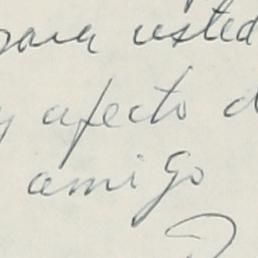 para usted
y afecto d
amigo